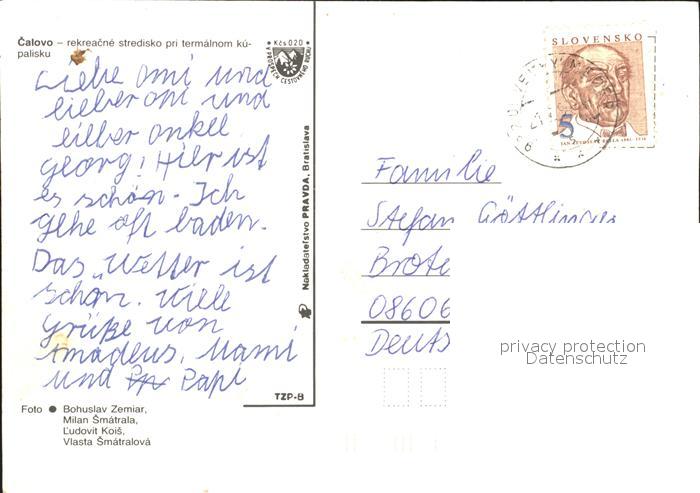 Čalovo – rekreačné stredisko pri termálnom kú-
palisku
Kčs 0 20
Liebe omi und
lieber opi und
lieber onkel
georg! Hier ist
es schön. Ich
gehe oft baden.
Das Wetter ist
schön. Viele
Grüße von
Amadeus, Mami
und Papi
Nakladateľstvo PRAVDA, Bratislava
TZP-8
Foto ● Bohuslav Zemiar,
Milan Šmátrala,
Ľudovit Koiš,
Vlasta Šmátralová
SLOVENSKO
5
Familie
Stefan Göttlinger
Brote
08606
Deuts
privacy protection
Datenschutz